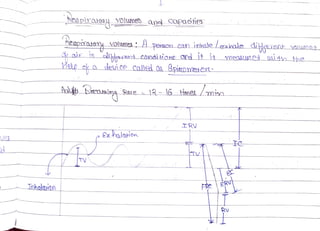 Respiratory volumes and capacities
Respiratory volumes: A person can inhale/exhale different volumes
of air in different conditions and it is measured with the
Help of a device called as Spirometer.
Breathing Rate = 12-16 times/min
IRV
Exhalation
IC
TV
TV
EC
FRC
ERV
Inhalation
RV